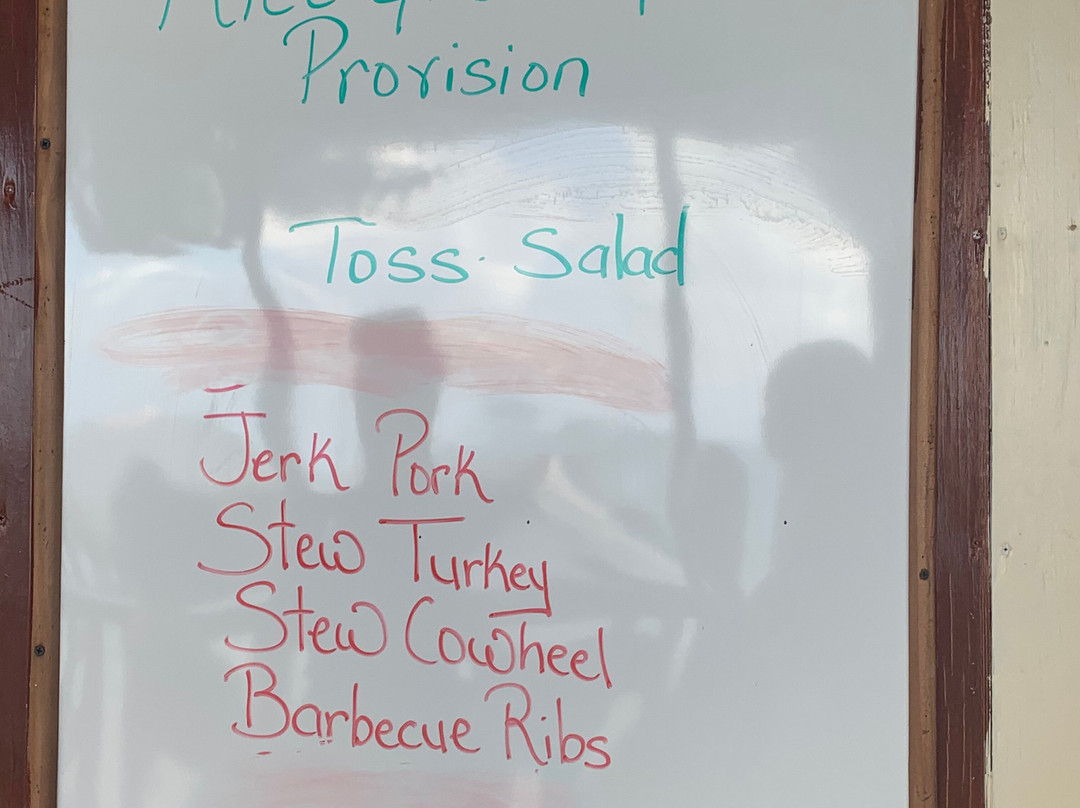 Provision
Toss Salad
Jerk Pork
Stew Turkey
Stew Cowheel
Barbecue Ribs